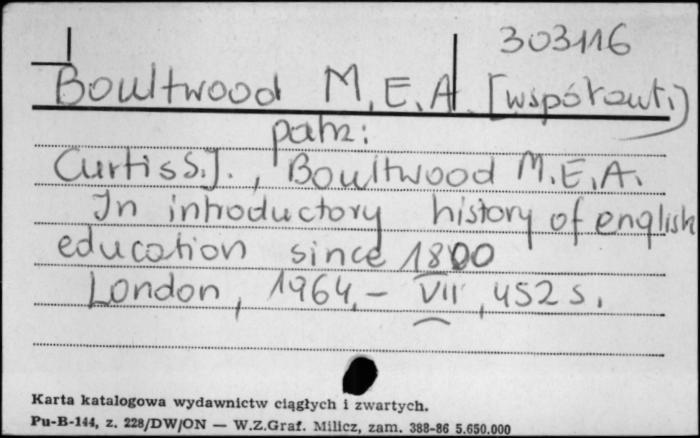 303116
Boultwood M.E.A. [współaut.]
patrz:
Curtis S.J., Boultwood M.E.A.
In introductory history of english
education since 1800
London, 1964.- VII, 452 s.
Karta katalogowa wydawnictw ciągłych i zwartych.
Pu-B-144, z. 228/DW/ON — W.Z.Graf. Milicz, zam. 388-86 5.650.000